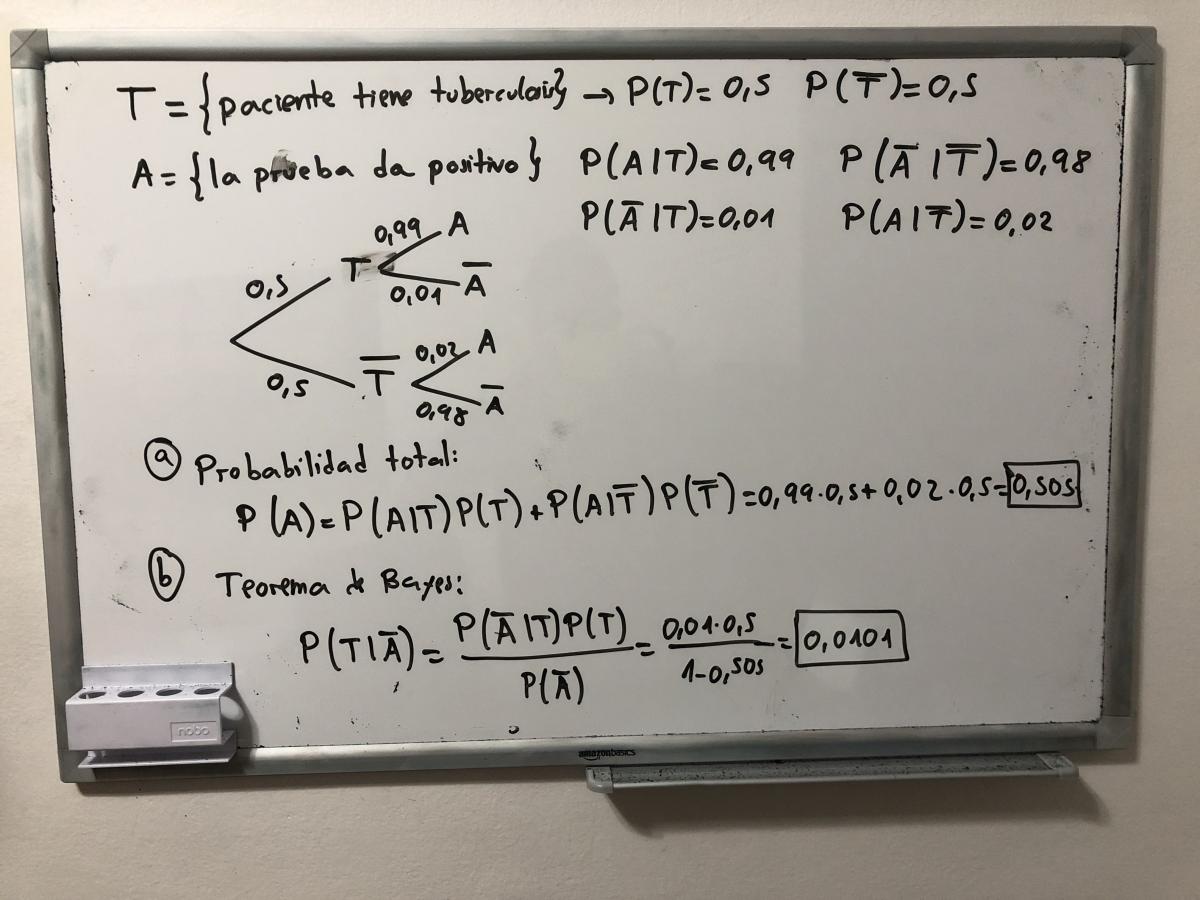 T = {paciente tiene tuberculosis} → P(T) = 0,5 P(T̅) = 0,5
A = {la prueba da positivo} P(A|T) = 0,99 P(A̅|T̅) = 0,98
P(A̅|T) = 0,01 P(A|T̅) = 0,02
0,99 A
0,5 T
0,01 A̅
0,02 A
0,5 T̅
0,98 A̅
a Probabilidad total:
P(A) = P(A|T)P(T) + P(A|T̅)P(T̅) = 0,99·0,5 + 0,02·0,5 = 0,505
b Teorema de Bayes:
P(T|A̅) = P(A̅|T)P(T) / P(A̅) = 0,01·0,5 / 1-0,505 = 0,0101
nobo
amazonbasics